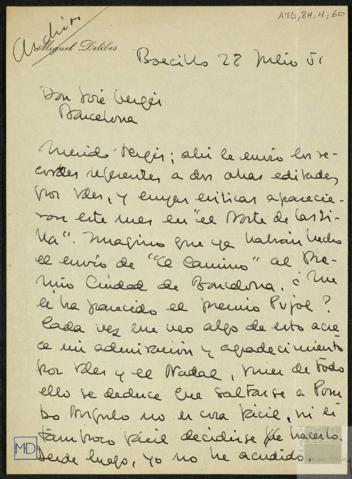 AMD, 84, 4, 60
Archivo
Miguel Delibes
Boecillo 28 Julio 51
Don José Vergés
Barcelona
Querido Vergés; ahí le envío los re-
cortes referentes a dos obras editadas
por Vdes, y cuyas críticas aparecie-
ron este mes en "El Norte de Casti-
lla". Imagino que ya habrán hecho
el envío de "El Camino" al Pre-
mio Ciudad de Barcelona. ¿Qué
le ha parecido el premio Pujol?
Cada vez que veo algo de esto crece
mi admiración y agradecimiento
por Vdes y el Nadal, pues de todo
ello se deduce que saltarse a Pom-
bo Angulo no es cosa fácil, ni es
tampoco fácil decidirse a hacerlo.
Desde luego, yo no he acudido.
MD